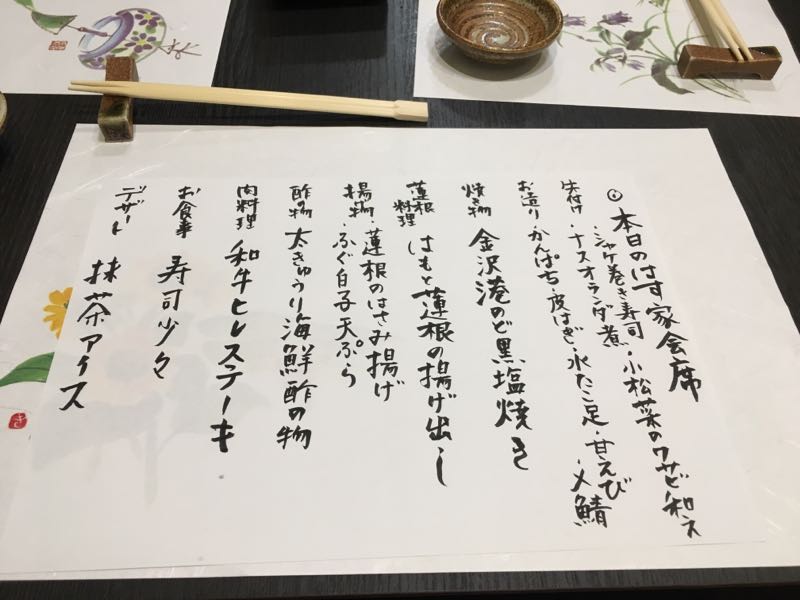 ◎本日のはす家会席
・シャケ巻き寿司・小松菜のワサビ和え
先付け・ナスオランダ煮
お造り・かんぱち・皮はぎ・水たこ足・甘えび
・〆鯖
焼き物 金沢港のど黒塩焼き
蓮根料理 はもと蓮根の揚げ出し
揚げ物・蓮根のはさみ揚げ
・ふぐ白子天ぷら
酢の物 太きゅうり海鮮酢の物
肉料理 和牛ヒレステーキ
お食事 寿司少々
デザート 抹茶アイス